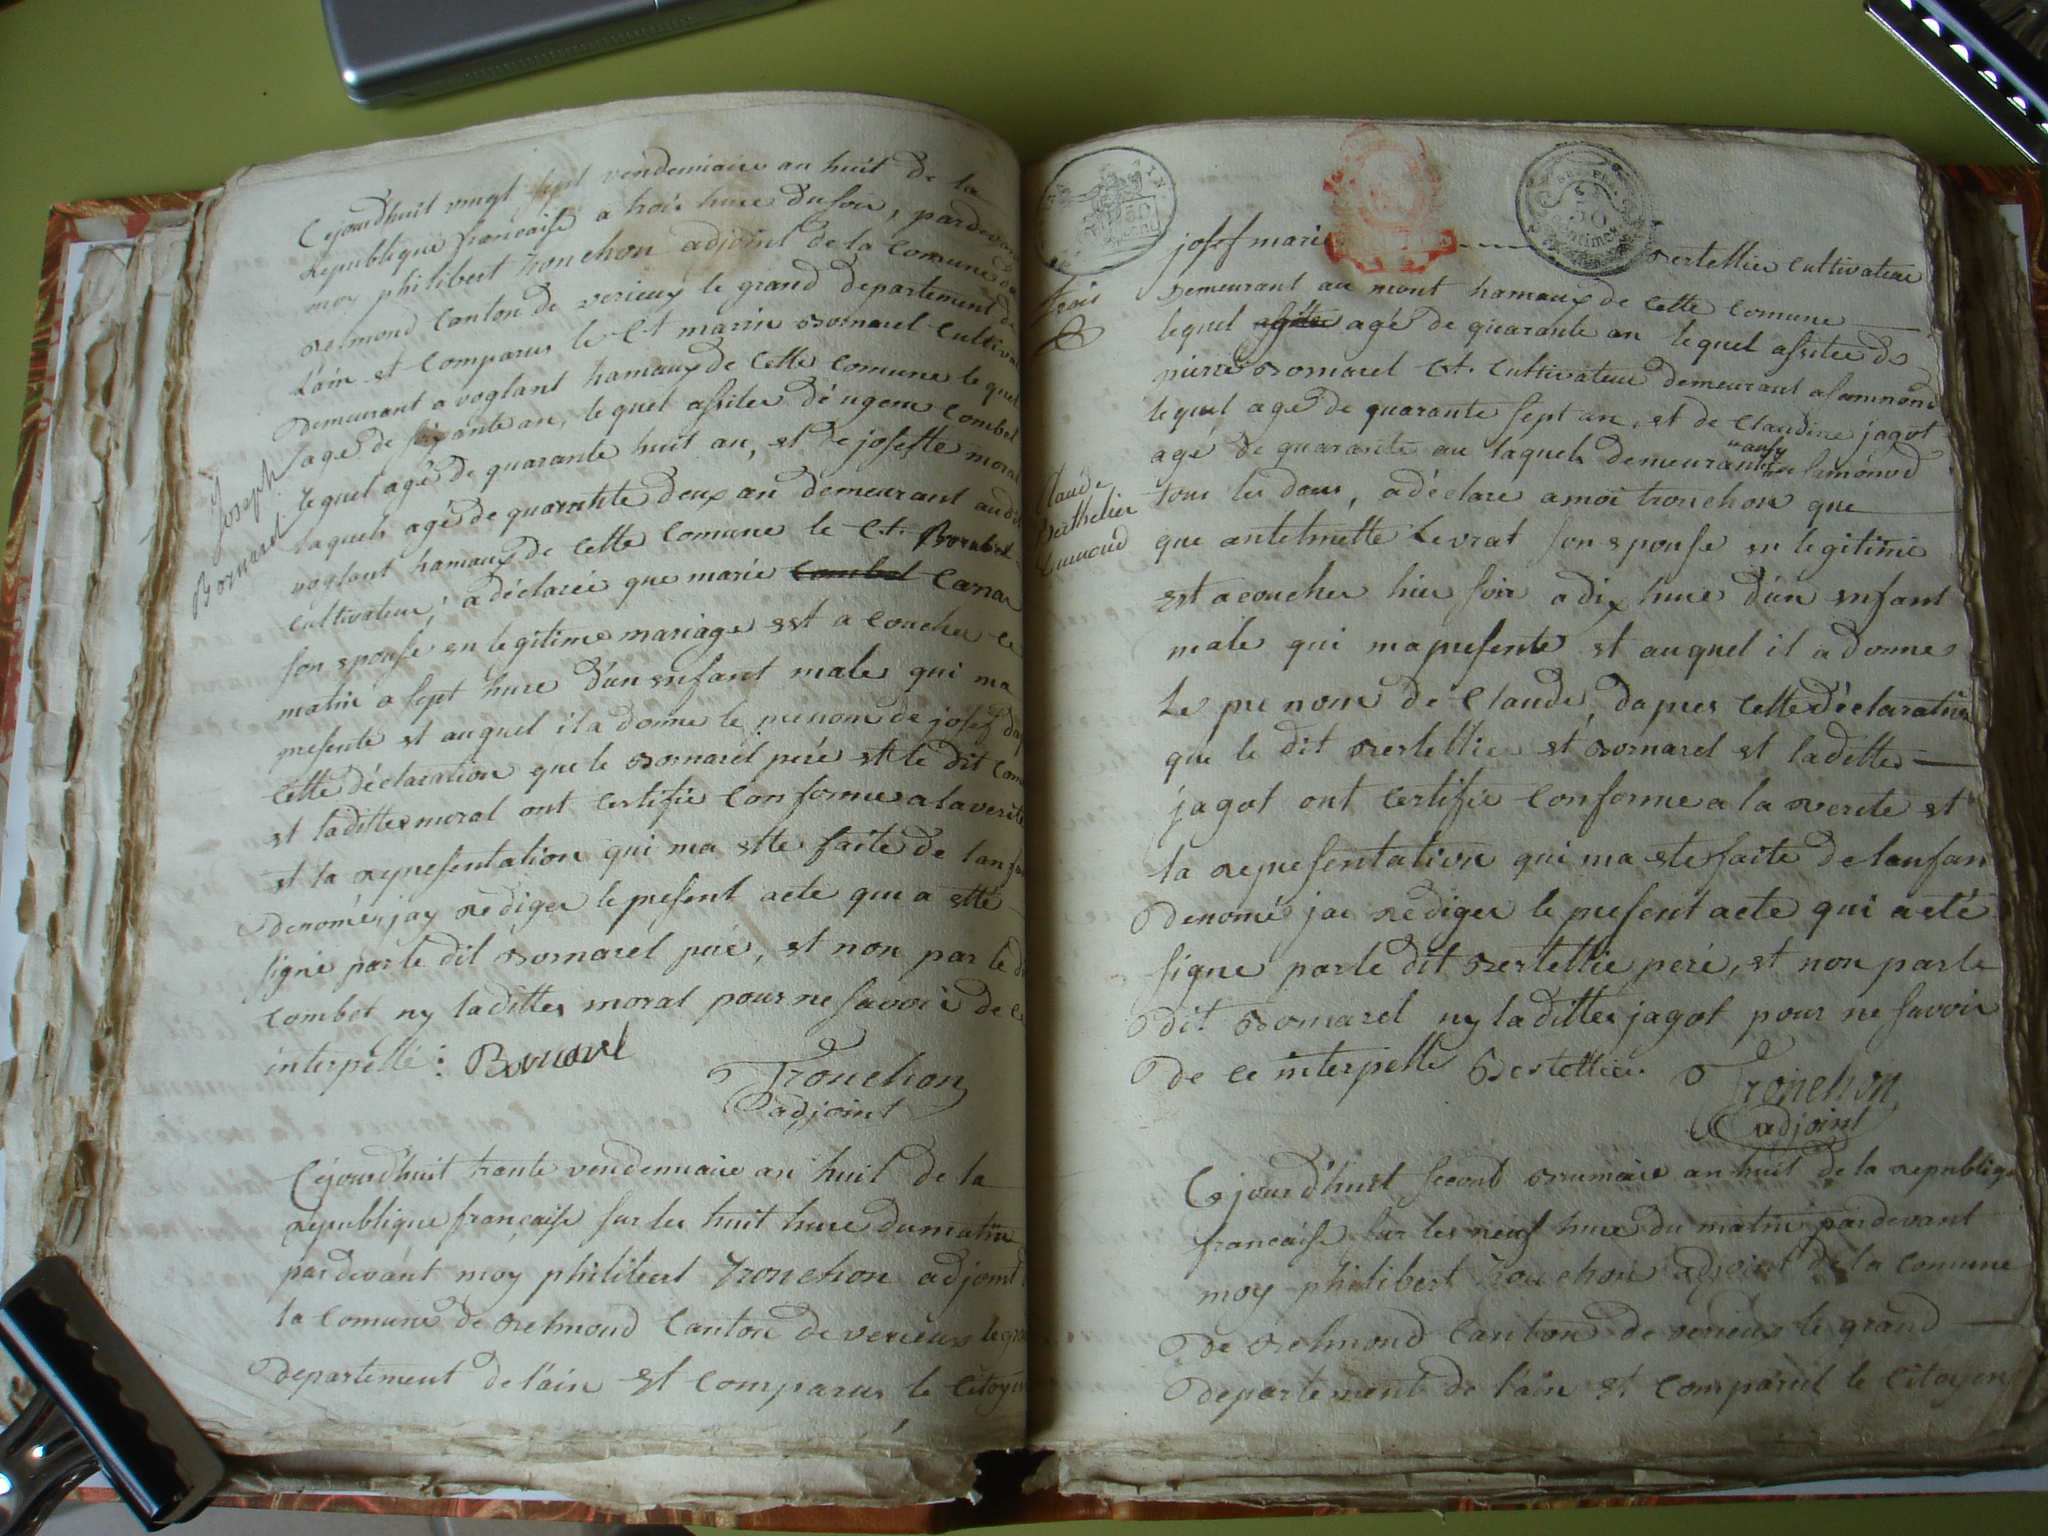 Joseph
Bornarel
Cejourdhuit vingt sept vendemiaire an huit de la
republique francaise a trois hure du soir, pardevan
moy philibert tronchon adjoint de la comune de
belmond canton de verieux le grand departement de
l'ain et comparus le Ct marin bornarel cultiva
demeurant a voglant hamaux de cette comune le quel
age de soixante an, le quel assiter d'eugene combet
lequel agé de quarante huit an, et de josette moral
laquele agé de quarante deux an demeurant audit
voglant hamaux de cette comune le Ct. Bornarel
cultivateur, a déclarée que marie combet Carra
son epouse en legitime mariage est a coucher ce
matin a sept hure d'un enfant male qui ma
presente et auquel il a donne le prenom de josef dap
cette déclaration que le bornarel pere et le dit com
et laditte moral ont certifie conforme a la verite
et la representation qui ma ette faite de lanfan
denomé, jay rediger le present acte qui a etté
signé par le dit bornarel pere, et non par le d
combet ny laditte moral pour ne savoir de ce
interpellé : Bornarel
Tronchon
adjoint
Cejourdhuit trante vendemiaire an huit de la
republique française sur les huit hure du matin
pardevant moy philibert tronchon adjoint
la comune de belmond canton de verieux le gra
departement de l'ain et comparus le citoyen
trois
Claude
Berthelier
Lumoud
josef marie ---- bertellier cultivateur
demeurant au mont hamaux de cette comune
lequel agé de quarante an lequel assitée de
pierre bornarel Ct. cultivateur demeurant a samonod
lequel agé de quarante sept an, et de claudine jagot
agé de quarante an laquele demeurant aussy a samonod
tous les deux, a déclaré a moi tronchon que
que antelmette Levrat son epouse en legitime
est acoucher hier soir a dix hure d'un enfant
male qui ma presente et auquel il a donne
Le pre nom de Claude, dapres cette déclaration
que le dit bertellie et bornarel et laditte
jagot ont certifie conforme a la verite et
la representation qui ma ete faite de lanfan
denomé jae rediger le present acte qui a eté
signe par le dit bertellie peré, et non par le
dit bornarel ny laditte jagot pour ne savoir
de ce interpelle Bertellier
Tronchon
adjoint
Cejourd'huit second brumaire an huit de la republique
francaise sur les neuf hure du matin pardevant
moy philibert tronchon adjoint de la comune
de belmond canton de verieux le grand
departement de l'ain et comparut le citoyen